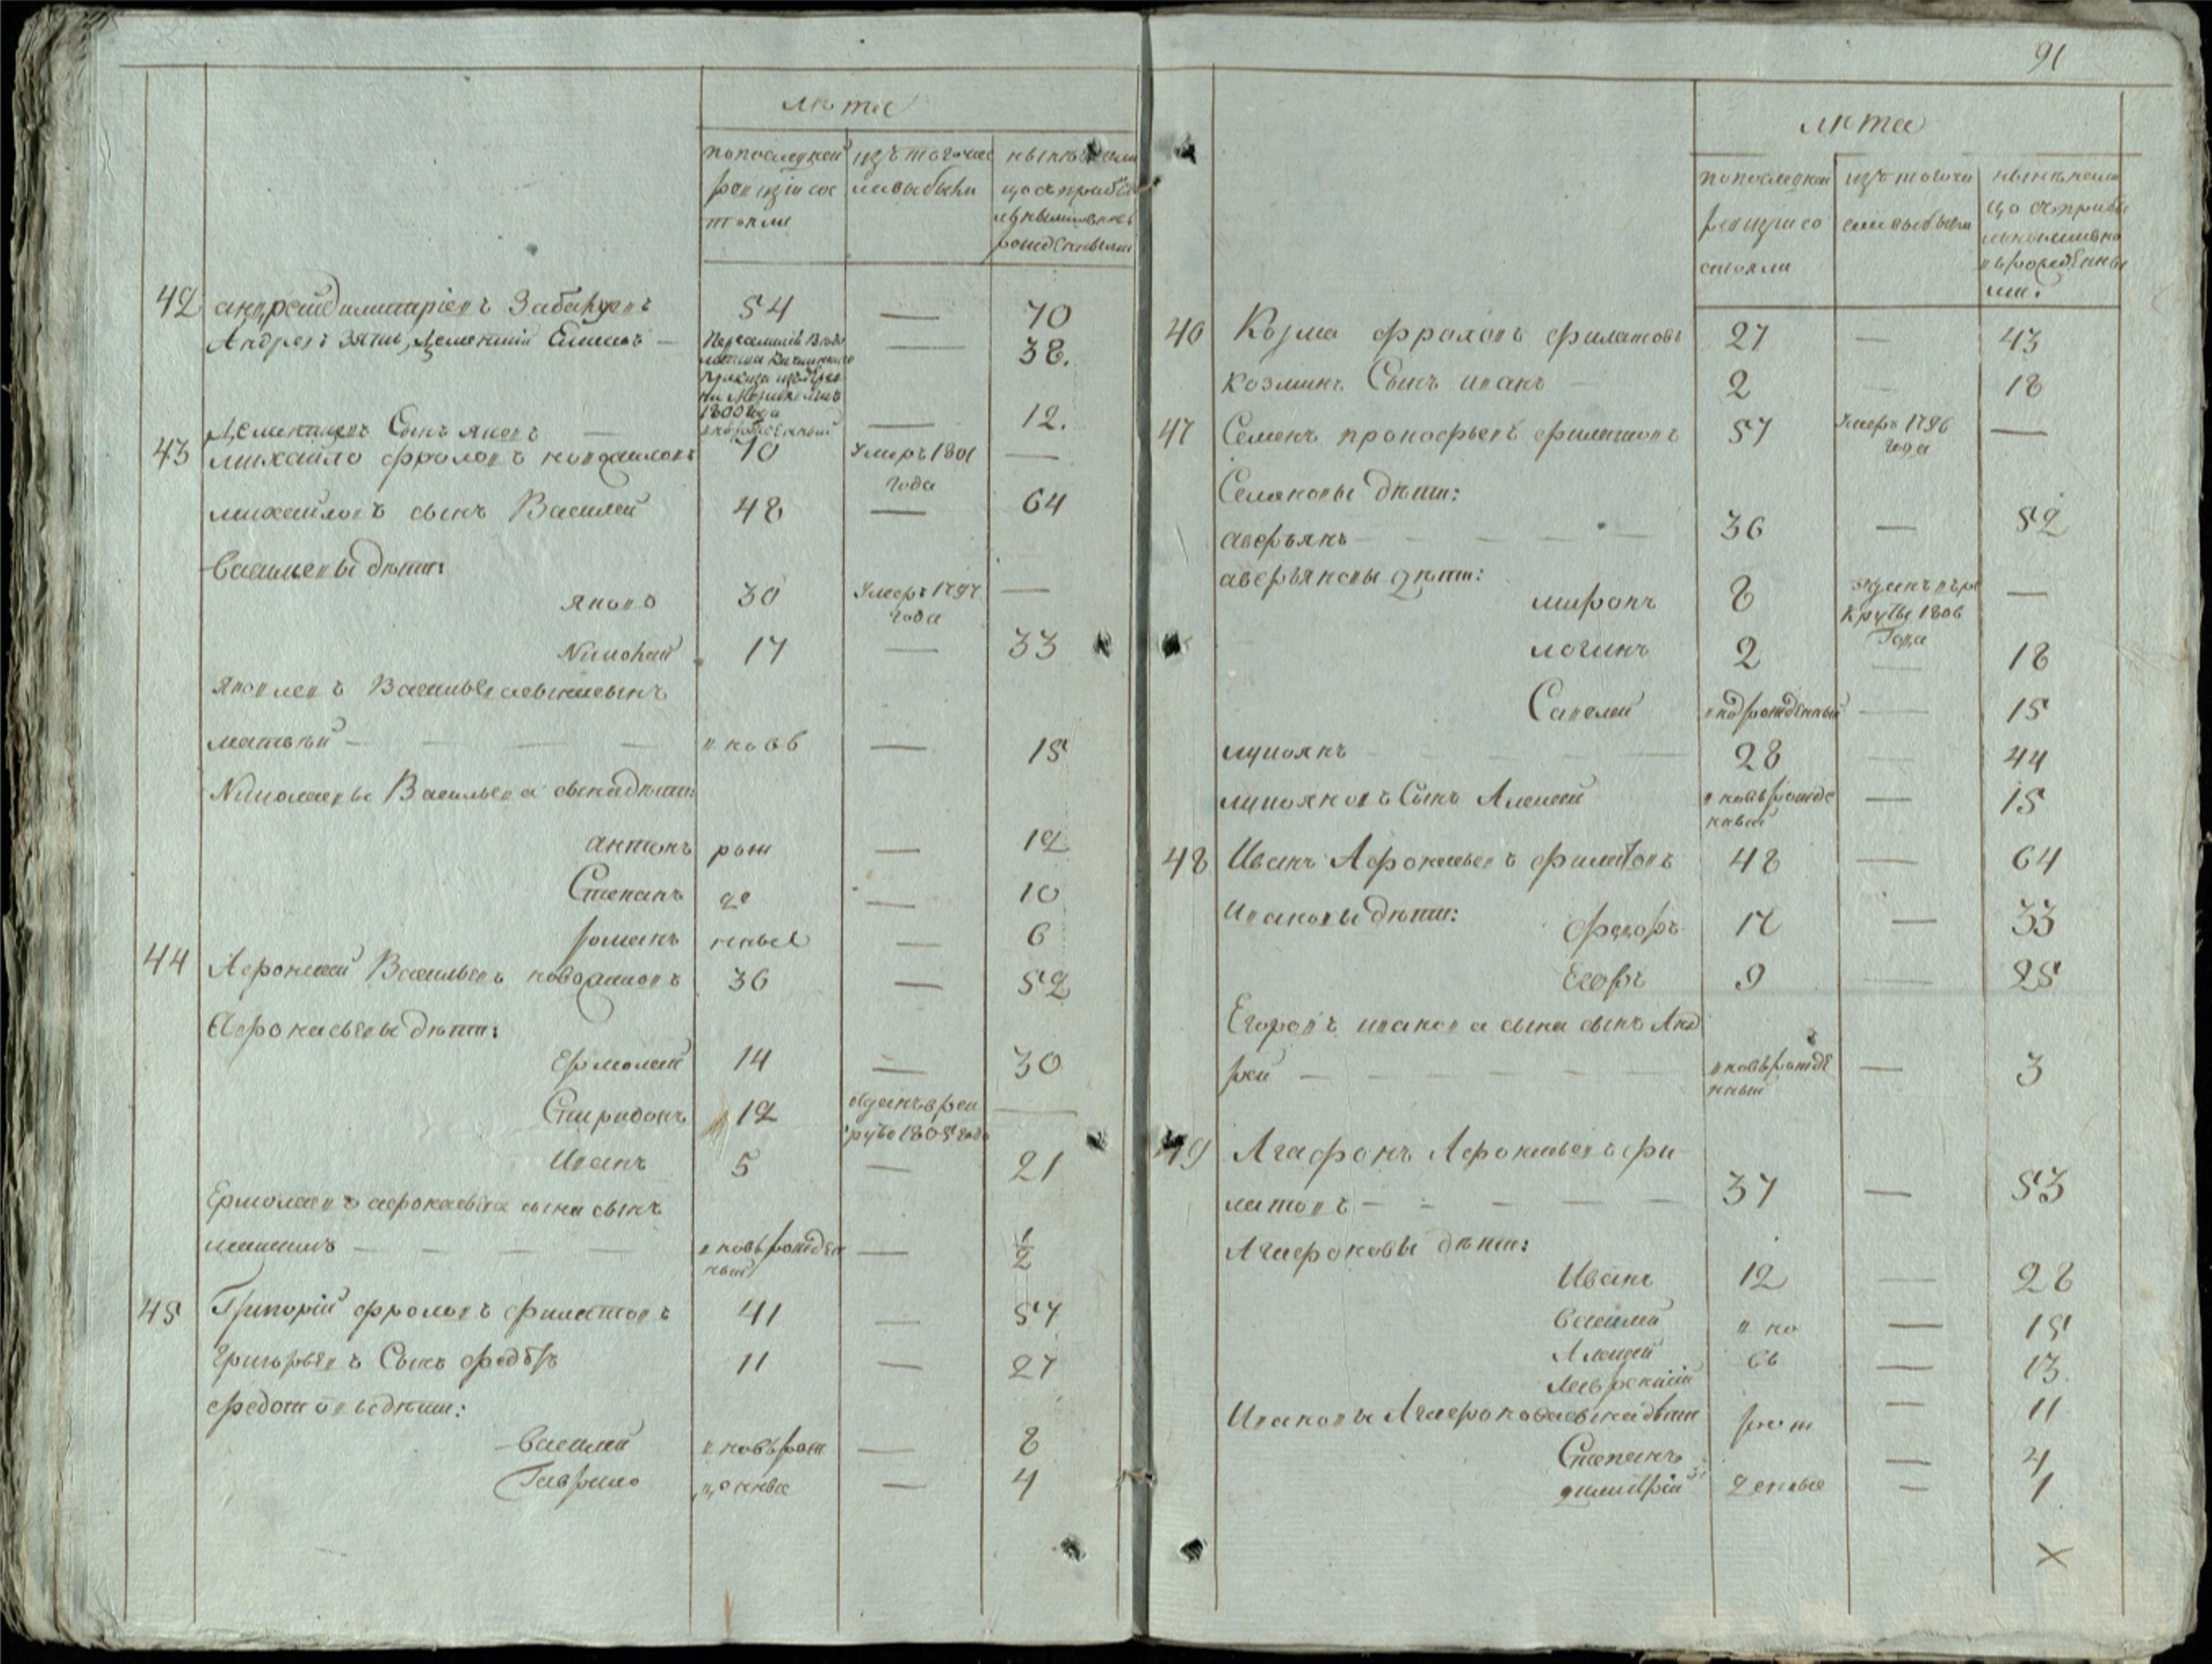 лѣта
по последней ревизіи состояли
изъ того числа выбыли
нынѣ на лицо съ прибылыми и вновь рожденными
42 андрей димитріевъ Забалуевъ 54 — 70
Андреевъ зять, Дементій — — 38.
1800 года
Дементьевъ Сынъ яковъ — вновьрожденный — 12.
43 михайло фроловъ 70 Умеръ 1801 года —
михайловъ сынъ Василей 48 — 64
Васильевы дѣти:
яковъ 30 Умеръ 1797 года —
Николай 17 — 33
яковлевъ Васильева сына сынъ
матвѣй — — — — вновь — 15
Николаевы Васильева сына дѣти:
антонъ рож — 12
Степанъ де — 10
романъ нные — 6
44 Афонасей Васильевъ 36 — 52
Афонасьевы дѣти:
Ермолай 14 — 30
Спиридонъ 12 отданъ в рекруты 1805 года —
Иванъ 5 — 21
Ермолаевъ афонасьева сына сынъ
максимъ — — — — вновьрожденный — 1/2
45 Григорій фроловъ филатовъ 41 — 57
григорьевъ Сынъ федотъ 11 — 27
федотовы дѣти:
Василей вновь рож — 8
Гаврило денные — 4
91
лѣта
по последней ревизіи состояли
изъ того числа выбыли
нынѣ на лицо съ прибылыми и вновь рожденными.
46 Кузма фроловъ филатовъ 27 — 43
козминъ Сынъ иванъ — 2 — 18
47 Семенъ прокофьевъ филатовъ 57 Умеръ 1796 года —
Семеновы дѣти:
аверьянъ — — — — — 36 — 52
аверьяновы дѣти:
миронъ 8 отданъ в рекруты 1806 Года —
логинъ 2 — 18
Савелей вновьрожденный — 15
лукоянъ — — 28 — 44
лукояновъ Сынъ Алексей вновь рожденный — 15
48 Иванъ Афонасьевъ филатовъ 48 — 64
Ивановы дѣти:
федоръ 17 — 33
Егоръ 9 — 25
Егоровъ иванова сына сынъ Анд
рей — — — — — вновь рожденный — 3
49 Агафонъ Афонасьевъ фи
латовъ — — — — — 37 — 53
Агафоновы дѣти:
Иванъ 12 — 28
Василей вно — 15
Алексей вь — 13
Лаврентий — 11
Ивановы Агафонова сына дѣти рож
Степанъ — 4
димитрій денные — 1